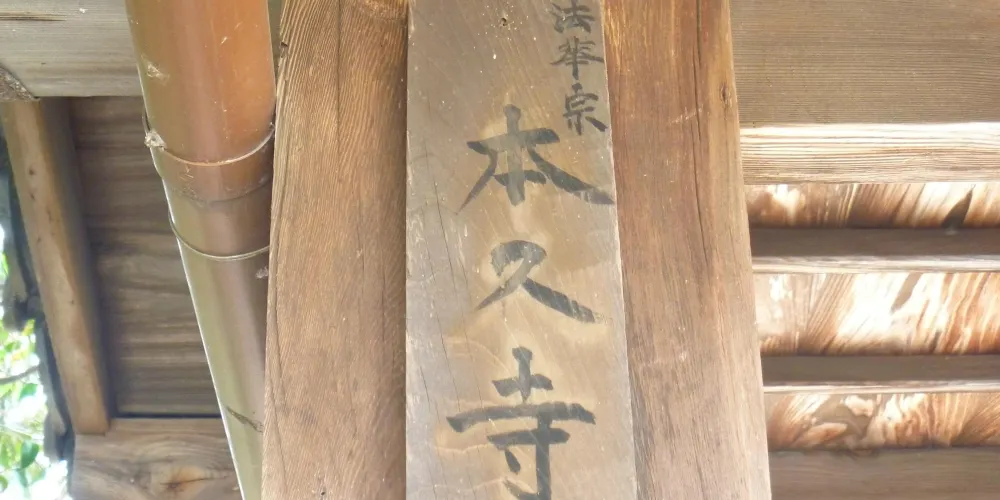 法華宗
本久寺